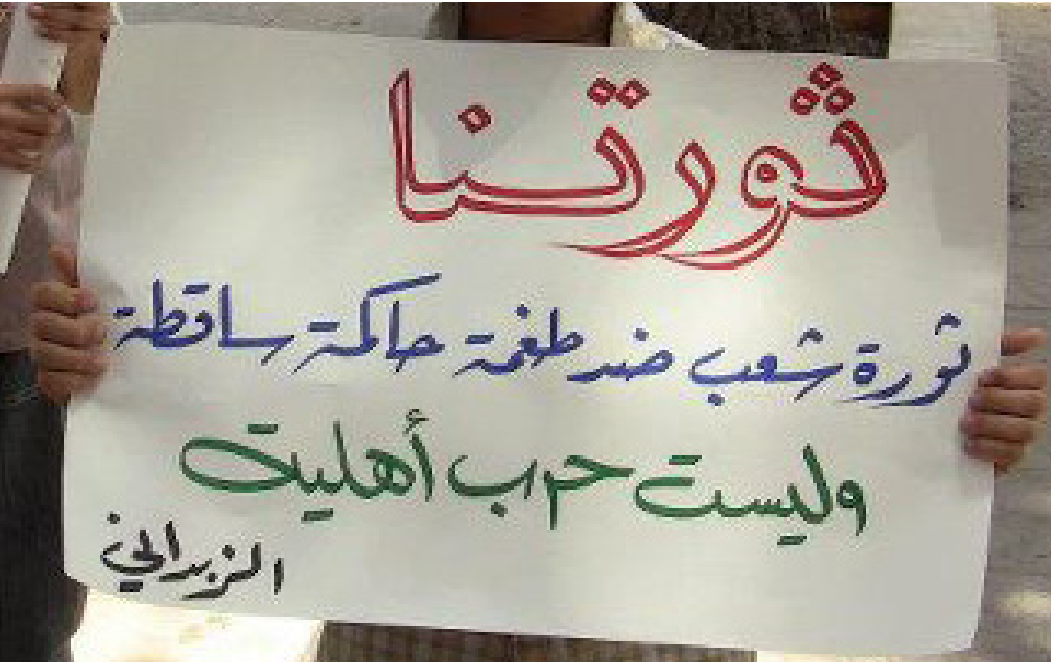 ثورتنا
ثورة شعب ضد طغمة حاكمة ساقطة
وليست حرب أهلية
الزبداني